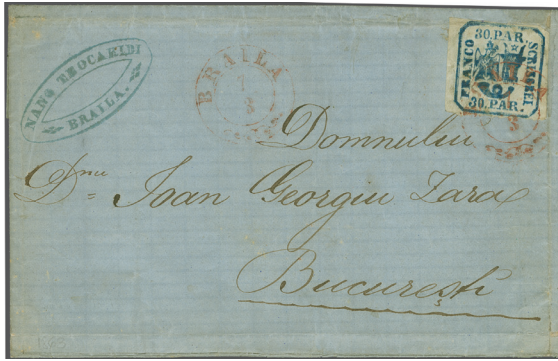 NANO THOCARIDI
BRAILA.
BRAILA
7
3
30.PAR.
FRANCO
SCRISOREI
30.PAR.
3
Domnului
Dnu Ioan Georgiu Zara
Bucureşti